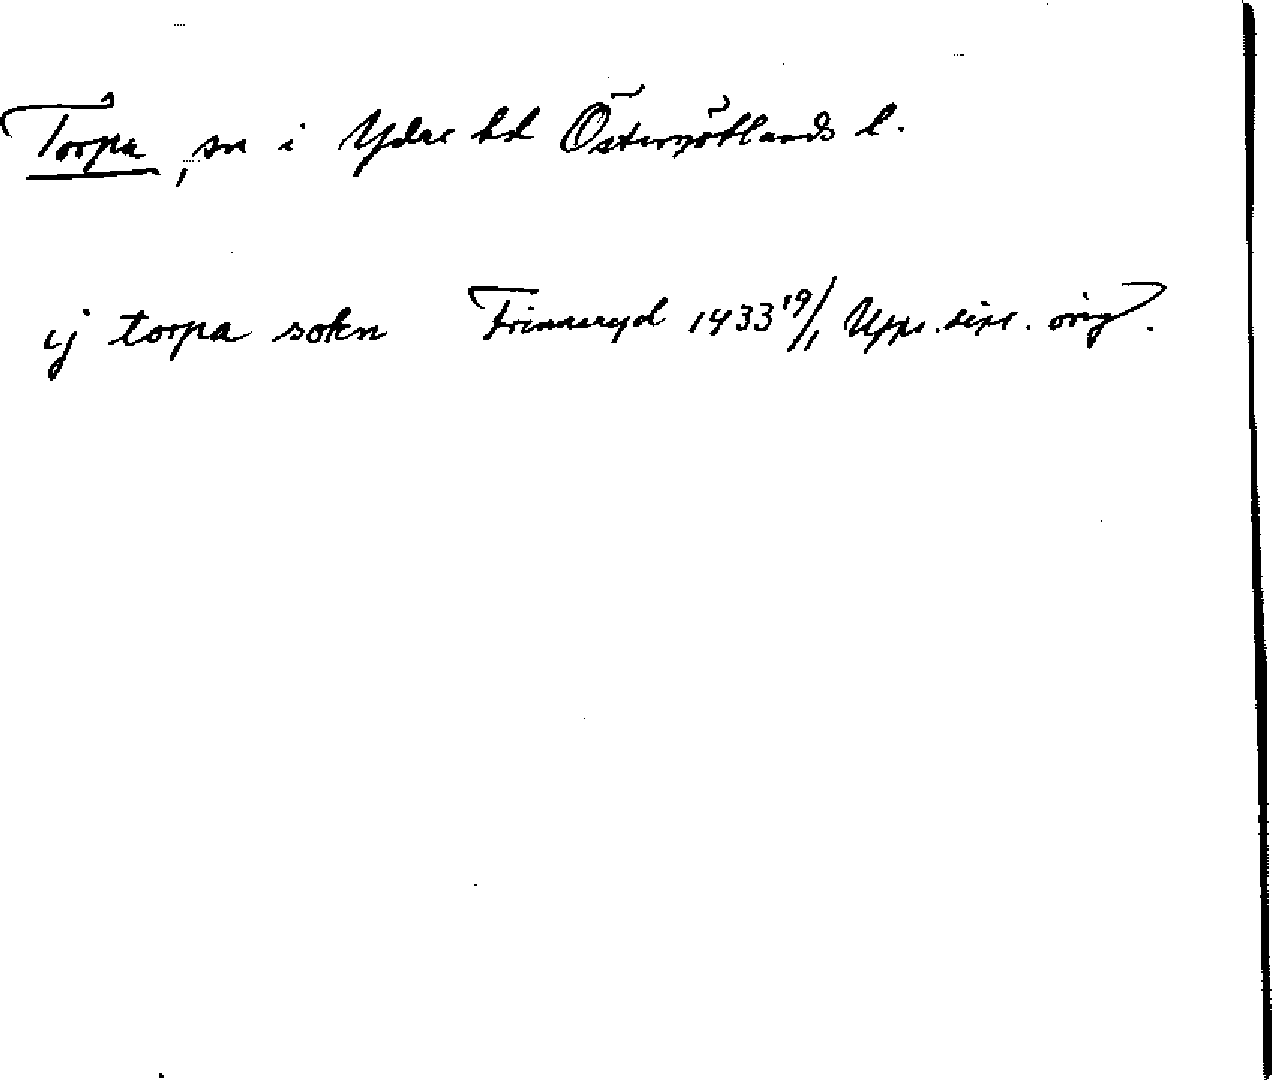 Torpa, sn i Ydre hd Östergötlands l.
ij torpa sokn Frinnaryd 1433 19/1 Upps. dipl. orig.